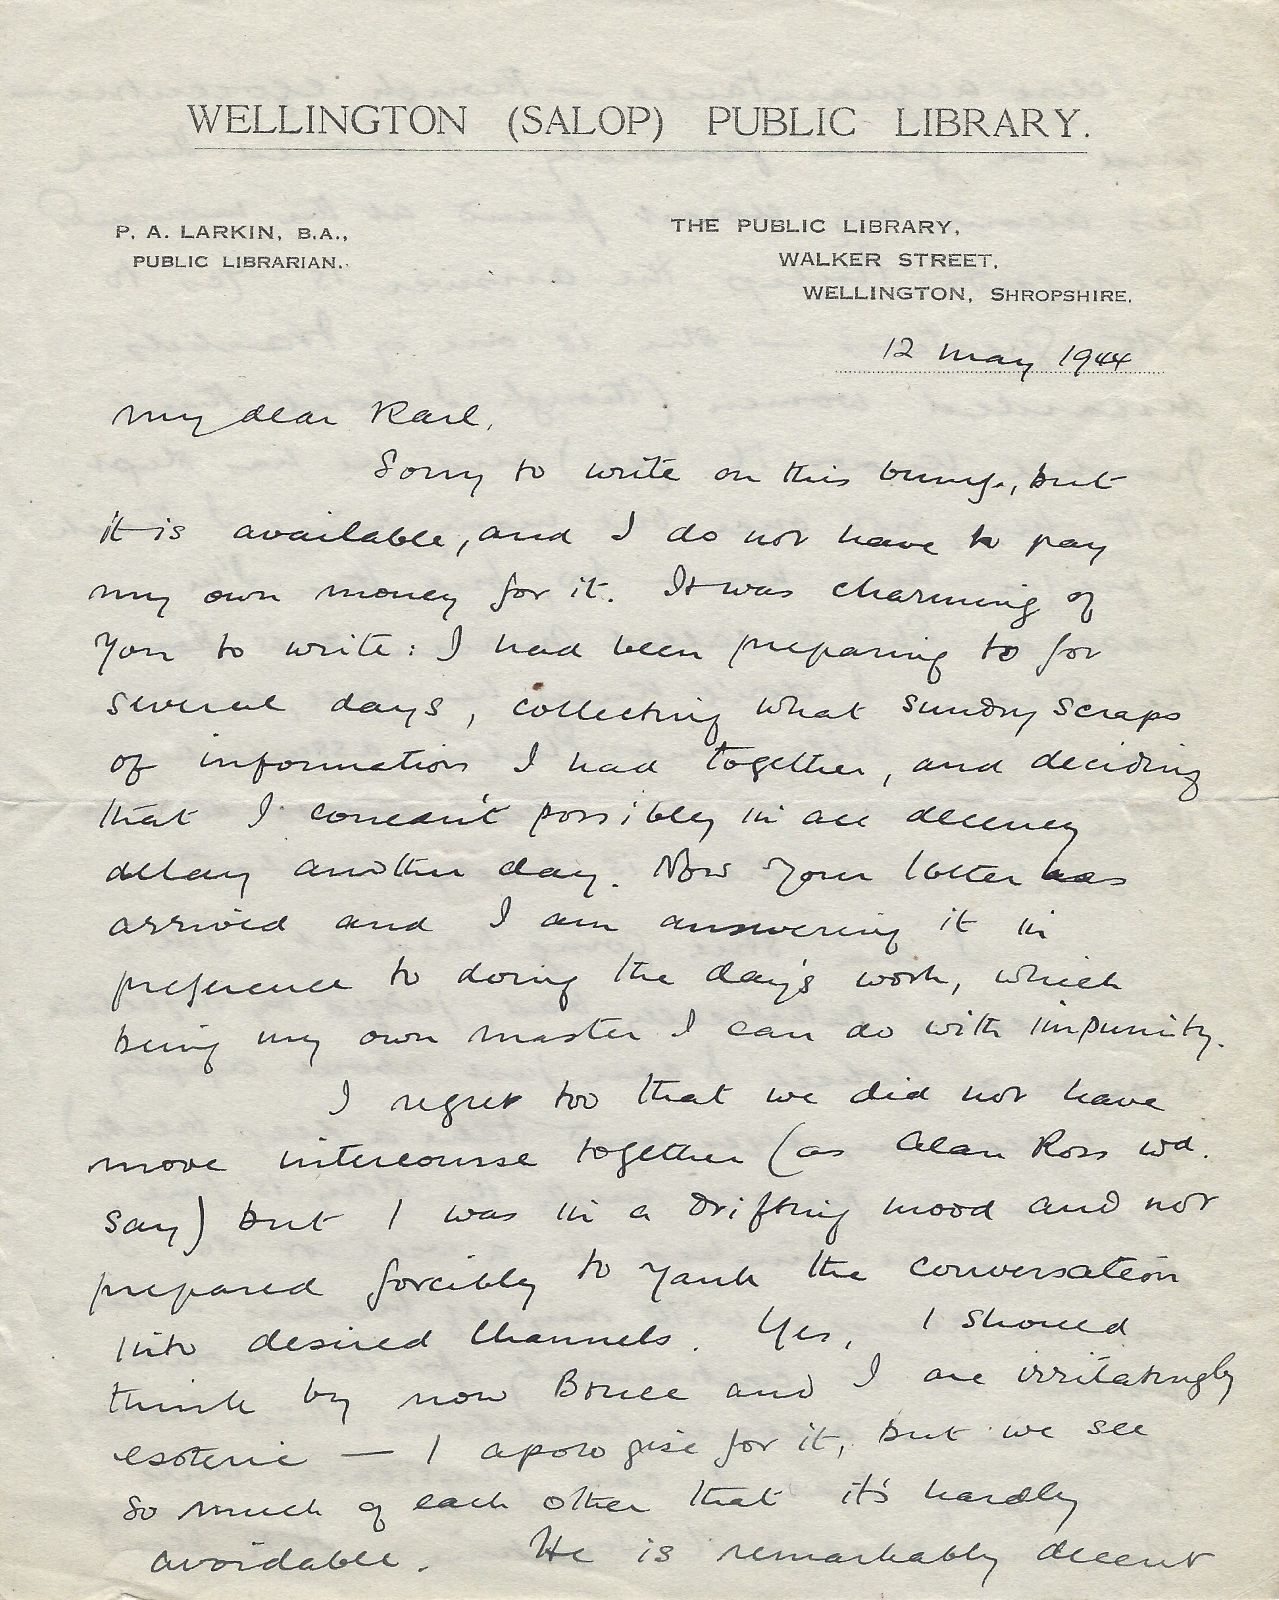 WELLINGTON (SALOP) PUBLIC LIBRARY.
P. A. LARKIN, B.A.,
PUBLIC LIBRARIAN.
THE PUBLIC LIBRARY,
WALKER STREET,
WELLINGTON, SHROPSHIRE.
12 May 1944
My dear Karl,
Sorry to write on this bumf, but
it is available, and I do not have to pay
my own money for it. It was charming of
you to write: I had been preparing to for
several days, collecting what sundry scraps
of information I had together, and deciding
that I couldn't possibly in all decency
delay another day. Now your letter has
arrived and I am answering it in
preference to doing the day's work, which
being my own master I can do with impunity.
I regret too that we did not have
more intercourse together (as Alan Ross wd.
say) but I was in a drifting mood and not
prepared forcibly to yank the conversation
into desired channels. Yes, I should
think by now Bruce and I are irritatingly
esoteric — I apologise for it, but we see
so much of each other that it's hardly
avoidable. He is remarkably decent